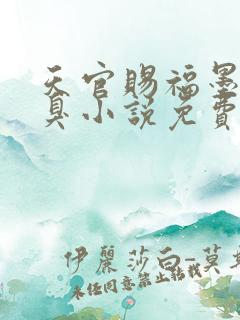 天官赐福墨
真小说免费
伊丽莎白-莫
未经同意禁止转载